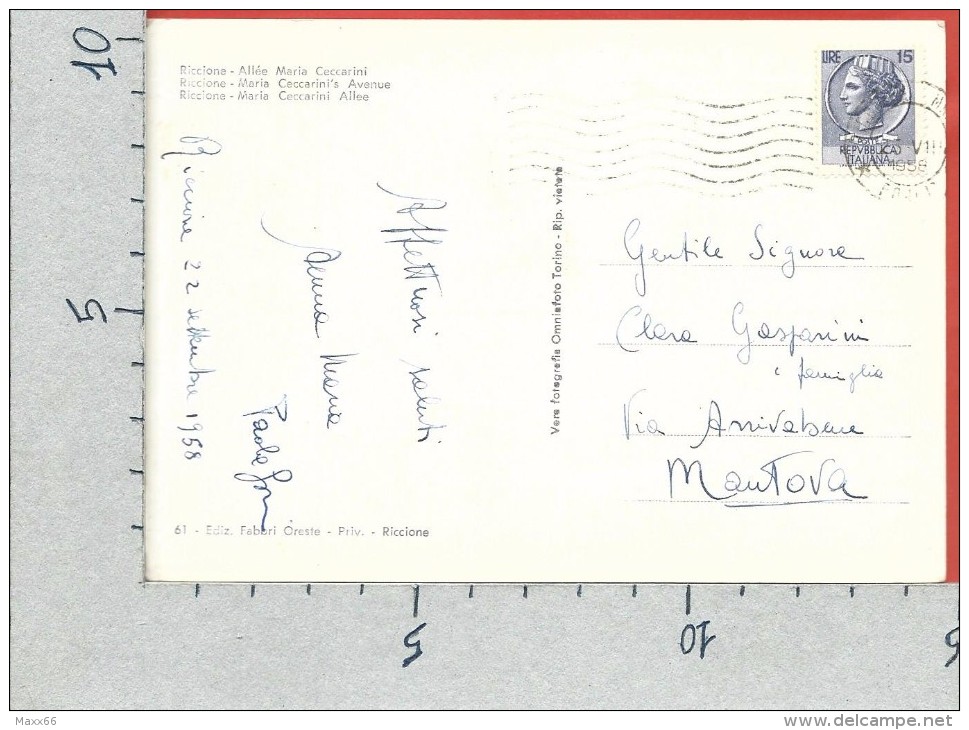 Riccione - Allée Maria Ceccarini
Riccione - Maria Ceccarini's Avenue
Riccione - Maria Ceccarini Allee
Riccione 22 settembre 1958
Affettuosi saluti
Maria
Paola
61 - Ediz. Fabbri Oreste - Priv. - Riccione
Vera fotografia Omniafoto Torino - Rip. vietata
LIRE 15
POSTE
REPVBBLICA
ITALIANA
VIII
1958
Gentile Signora
Clara Gasparini
e famiglia
Via Arrivabene
Mantova
10
5
5
10
Maxx66
www.delcampe.net